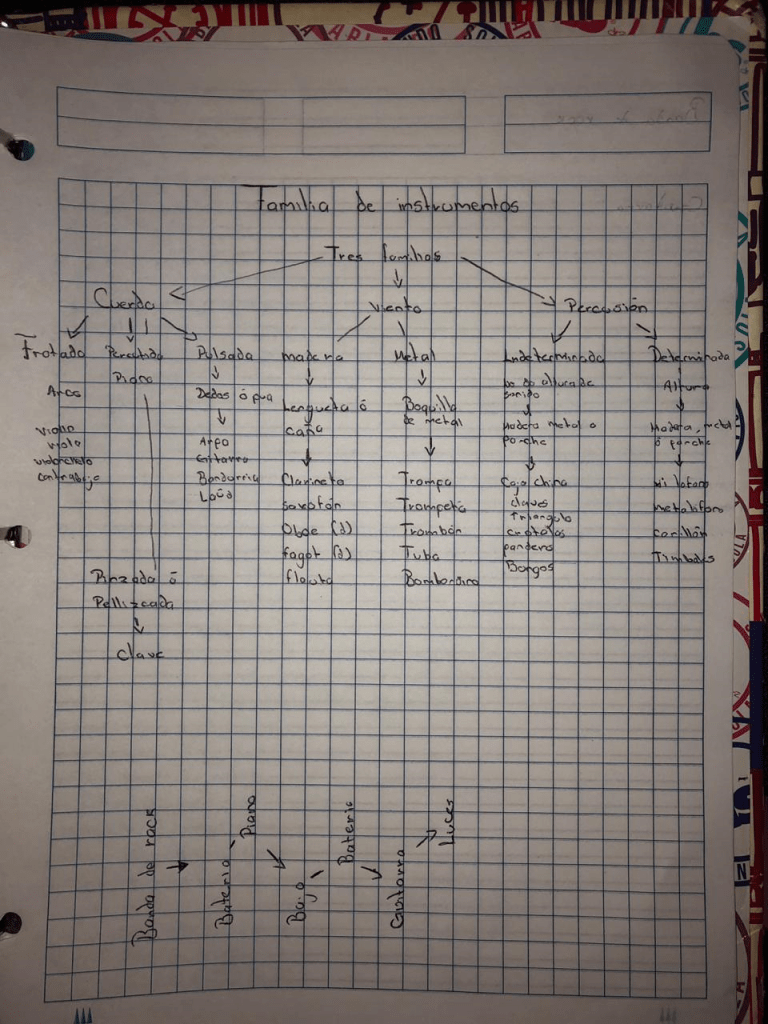 Familia de instrumentos
Tres familias
Cuerda
Viento
Percusión
Frotada
Percutida
Pulsada
madera
Metal
Indeterminada
Determinada
Piano
Arco
Dedos ó pua
Lengueta ó
caña
Boquilla
de metal
altura de
sonido
Altura
Madera metal o
parche
Madera, metal
ó parche
violín
viola
violonchelo
contrabajo
Arpa
Guitarra
Bandurria
Laúd
Clarinete
saxofón
Oboe (2)
fagot (2)
flauta
Trompa
Trompeta
Trombón
Tuba
Bombardino
Caja china
claves
triángulo
crótalos
pandero
Bongos
Xilófono
metalófono
carillón
Timbales
Pinzada ó
Pellizcada
Clave
Banda de rock
Bateria - Piano
Bajo - Bateria
Guitarra
Luces